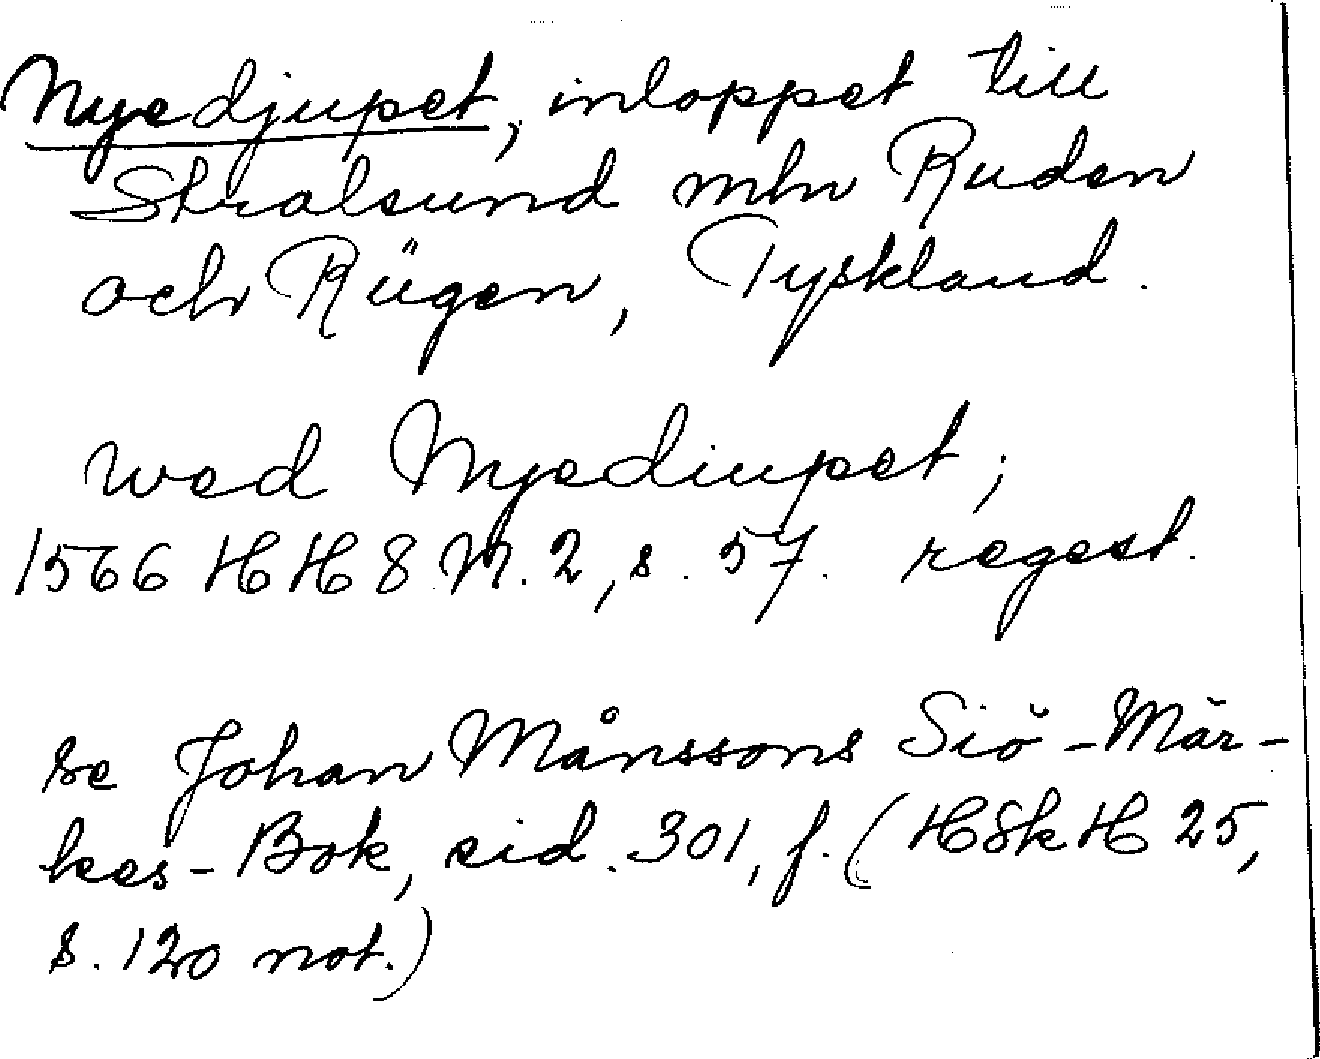 Nyedjupet, inloppet till
Stralsund mln Ruden
och Rügen, Tyskland.
wed Nyediupet;
1566 HH 8. N. 2, s. 57. regest.
se Johan Månssons Siö-Mär-
kes-Bok, sid. 301, f. (H8kH 25,
s. 120 not.)